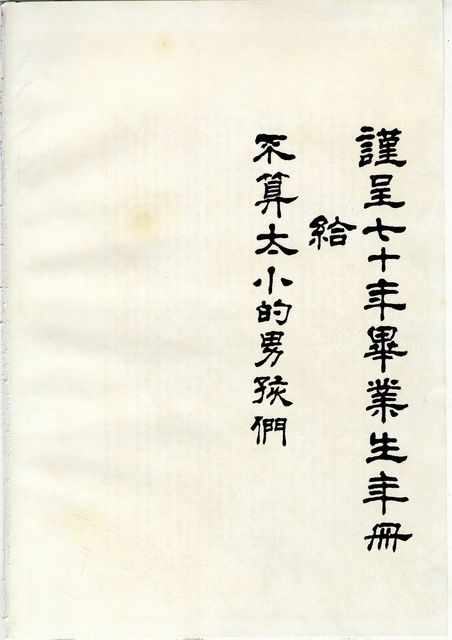 謹呈七十年畢業生年冊
給
不算太小的男孩們